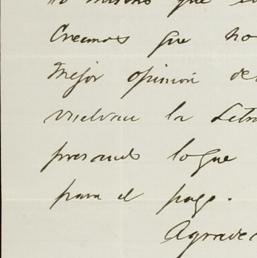 no mismo que e
Creemos que no
mejor opinion de
vuelvan la Letra
presando lo que
para el pago.
Agradec